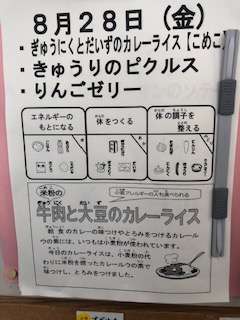 8月28日（金）
・ぎゅうにくとだいずのカレーライス【こめこ】
・きゅうりのピクルス
・りんごゼリー
エネルギーの
もとになる
体をつくる
体の調子を
整える
米粉の
小麦アレルギーの人も食べられる
牛肉と大豆のカレーライス
給食のカレーの味つけやとろみをつけるカレール
ウの素には、いつもは小麦粉が使われています。
今日のカレーライスは、小麦粉の代
わりに米粉を使ったカレールウの素で
味つけし、とろみをつけました。